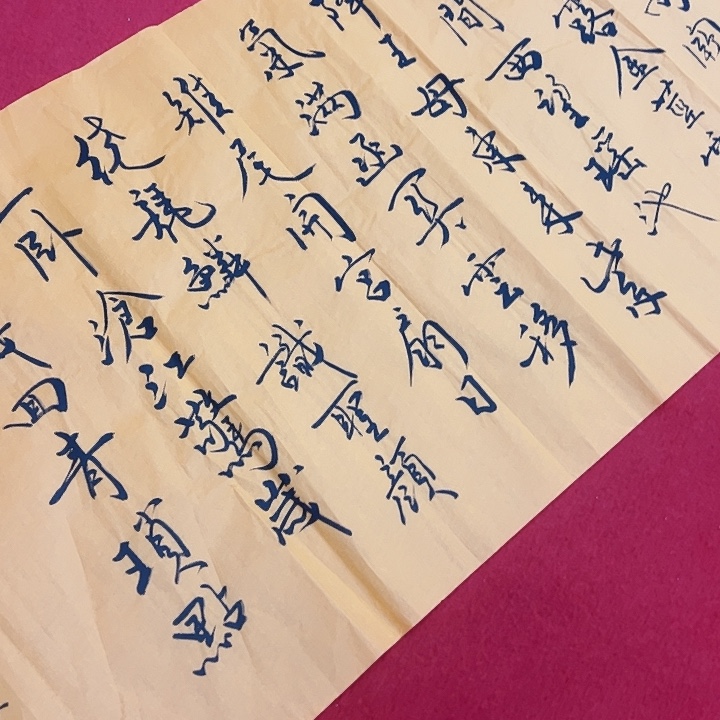 露金莖霄
間西望瑤池
降王母東來紫
氣滿函關雲移
雉尾開宮扇日
繞龍鱗識聖顏
一臥滄江驚歲
回青瑣點